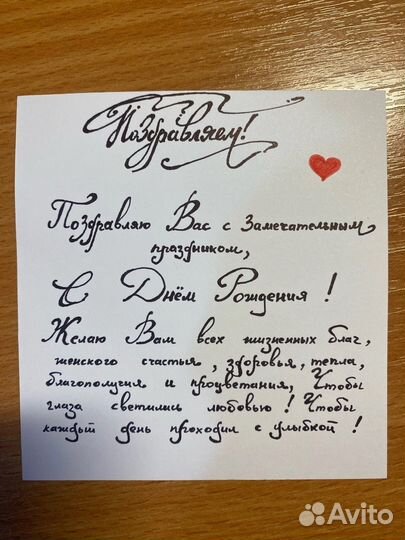 Поздравляем!
Поздравляю Вас с Замечательным
праздником,
С Днём Рождения !
Желаю Вам всех жизненных благ,
женского счастья, здоровья, тепла,
благополучия и процветания, Чтобы
глаза светились любовью! Чтобы
каждый день проходил с улыбкой!
Avito